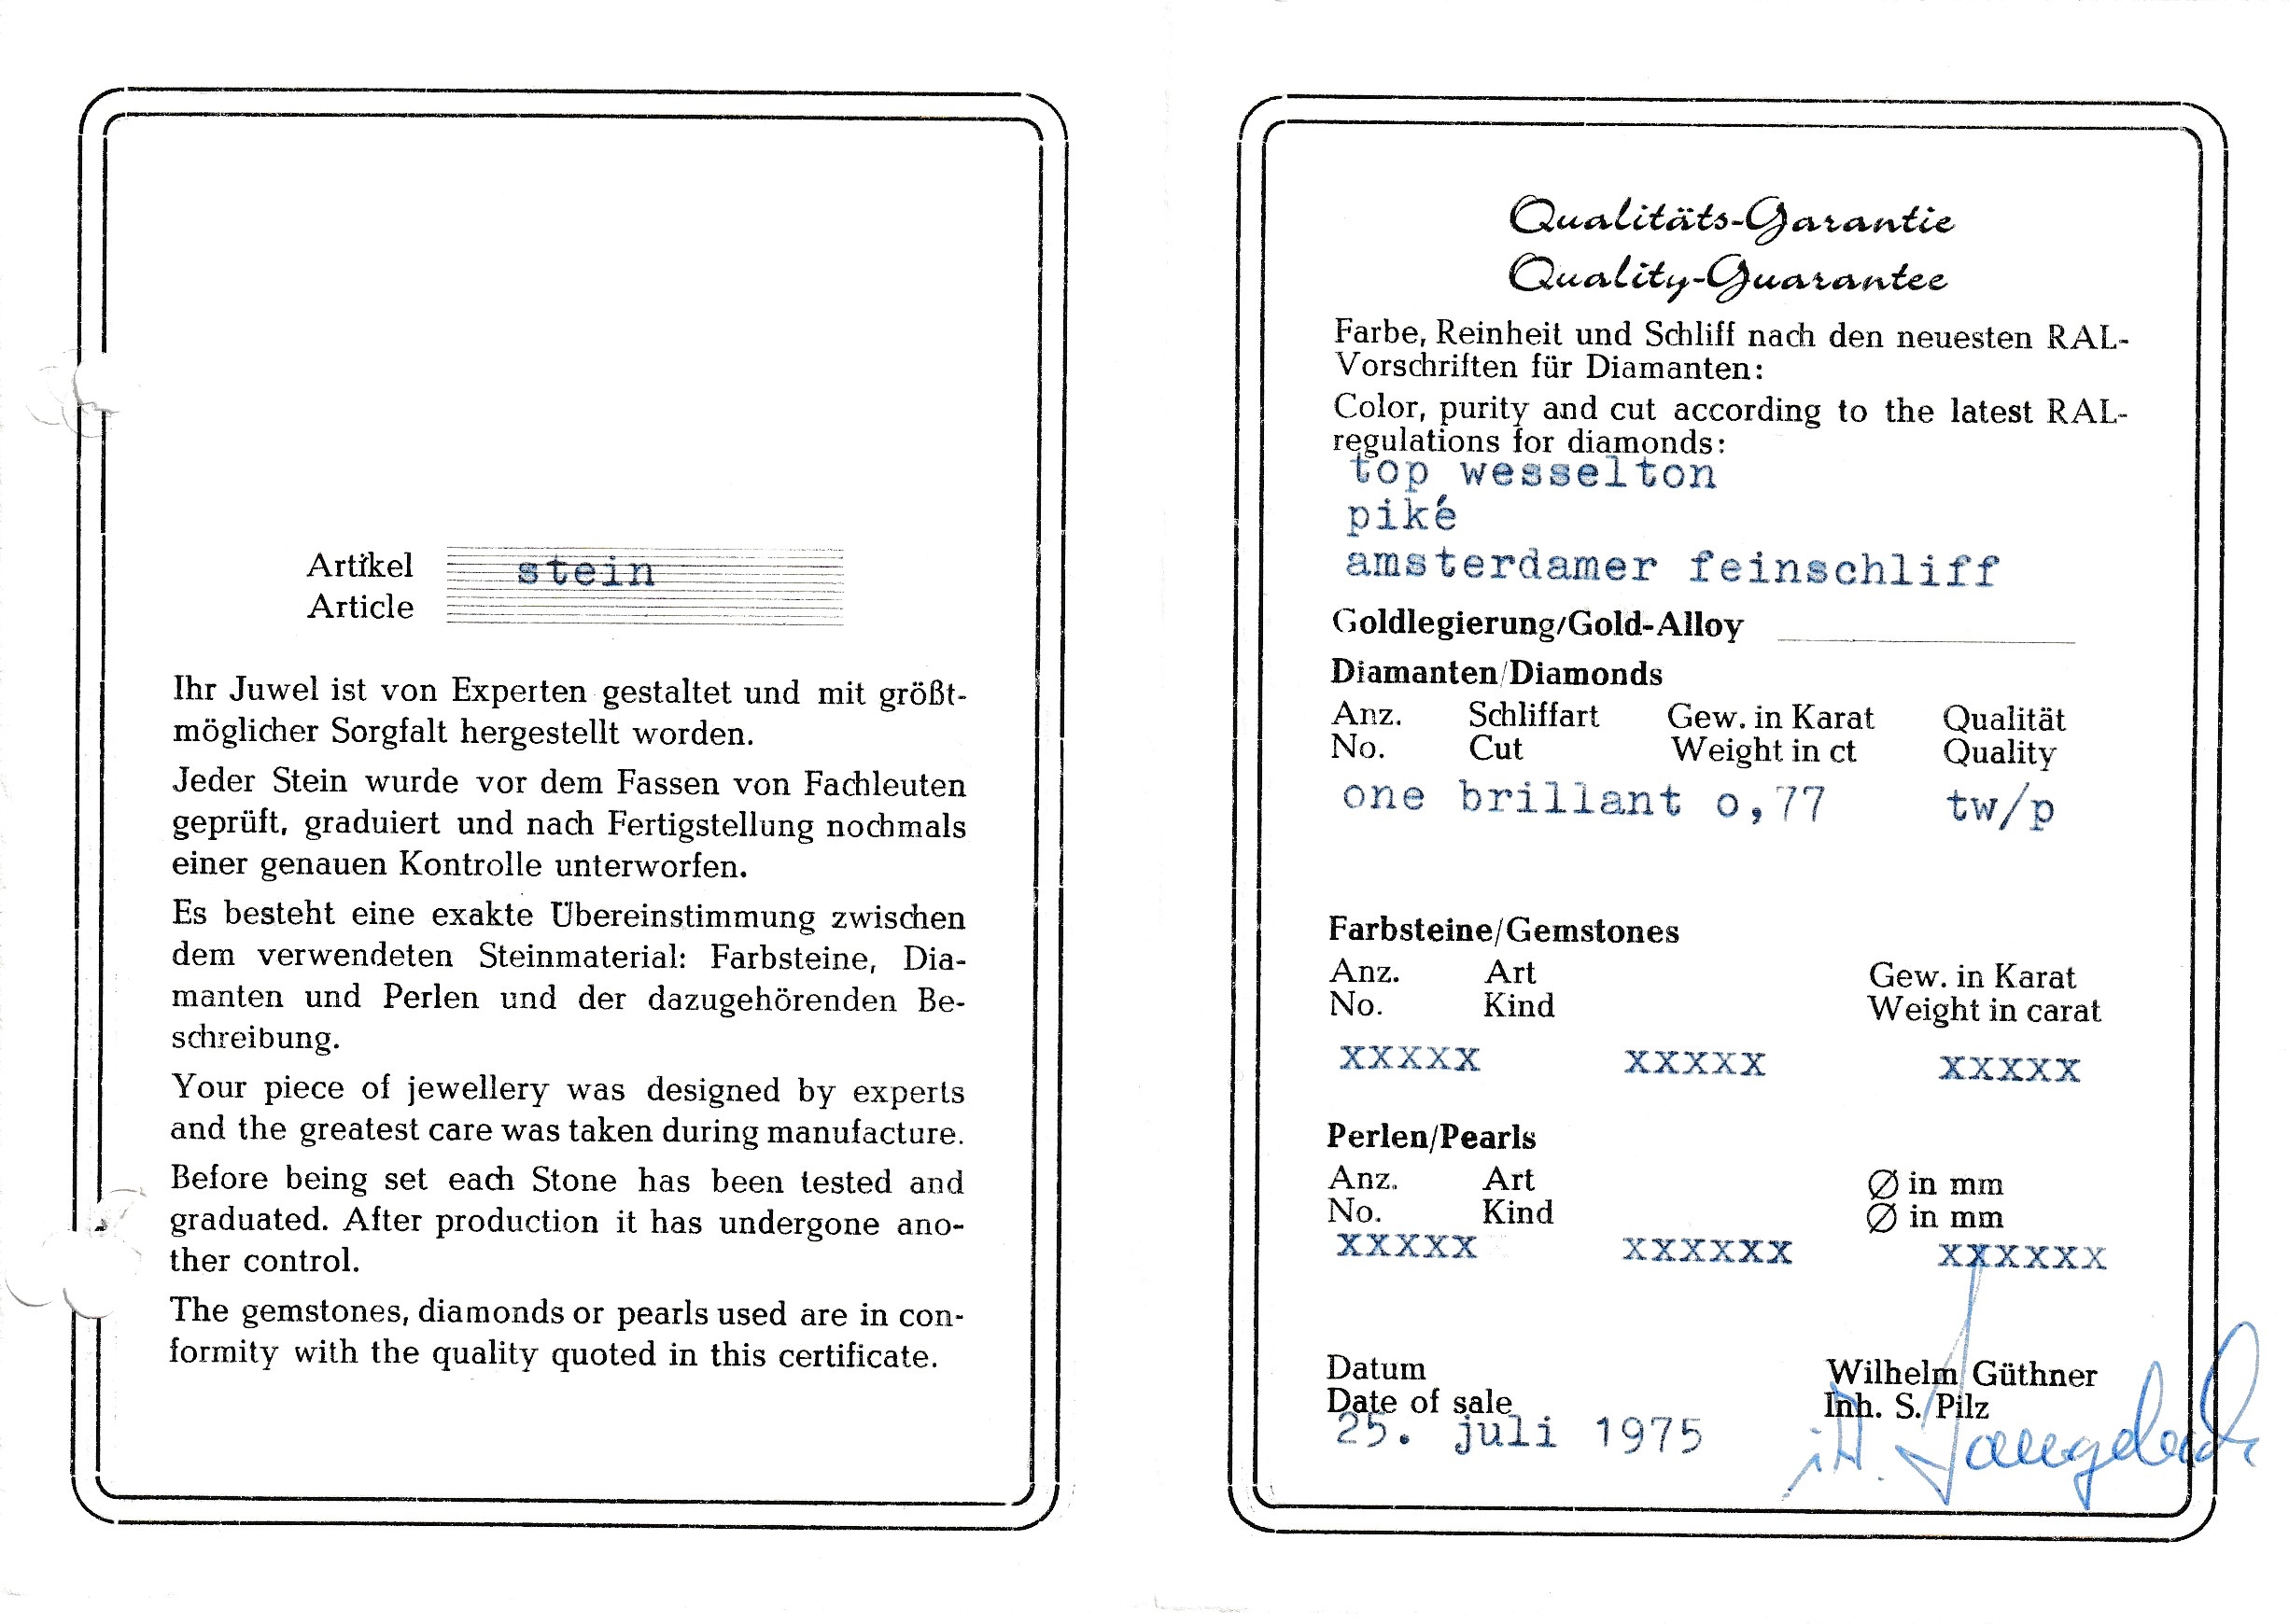 Artikel stein
Article
Ihr Juwel ist von Experten gestaltet und mit größt-
möglicher Sorgfalt hergestellt worden.
Jeder Stein wurde vor dem Fassen von Fachleuten
geprüft, graduiert und nach Fertigstellung nochmals
einer genauen Kontrolle unterworfen.
Es besteht eine exakte Übereinstimmung zwischen
dem verwendeten Steinmaterial: Farbsteine, Dia-
manten und Perlen und der dazugehörenden Be-
schreibung.
Your piece of jewellery was designed by experts
and the greatest care was taken during manufacture.
Before being set each Stone has been tested and
graduated. After production it has undergone ano-
ther control.
The gemstones, diamonds or pearls used are in con-
formity with the quality quoted in this certificate.
Qualitäts-Garantie
Quality-Guarantee
Farbe, Reinheit und Schliff nach den neuesten RAL-
Vorschriften für Diamanten:
Color, purity and cut according to the latest RAL-
regulations for diamonds:
top wesselton
piké
amsterdamer feinschliff
Goldlegierung/Gold-Alloy
Diamanten/Diamonds
Anz. Schliffart Gew. in Karat Qualität
No. Cut Weight in ct Quality
one brillant o,77 tw/p
Farbsteine/Gemstones
Anz. Art Gew. in Karat
No. Kind Weight in carat
xxxxx xxxxx xxxxx
Perlen/Pearls
Anz. Art Ø in mm
No. Kind Ø in mm
xxxxx xxxxxx xxxxxx
Datum Wilhelm Güthner
Date of sale Inh. S. Pilz
25. juli 1975